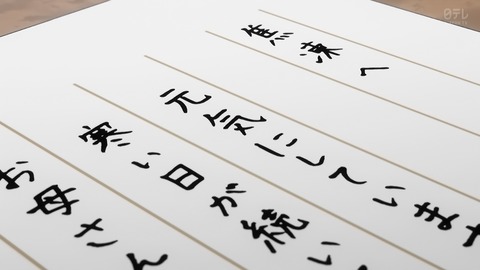 焦凍へ
元気にしています
寒い日が続い
お母さん
日テレ